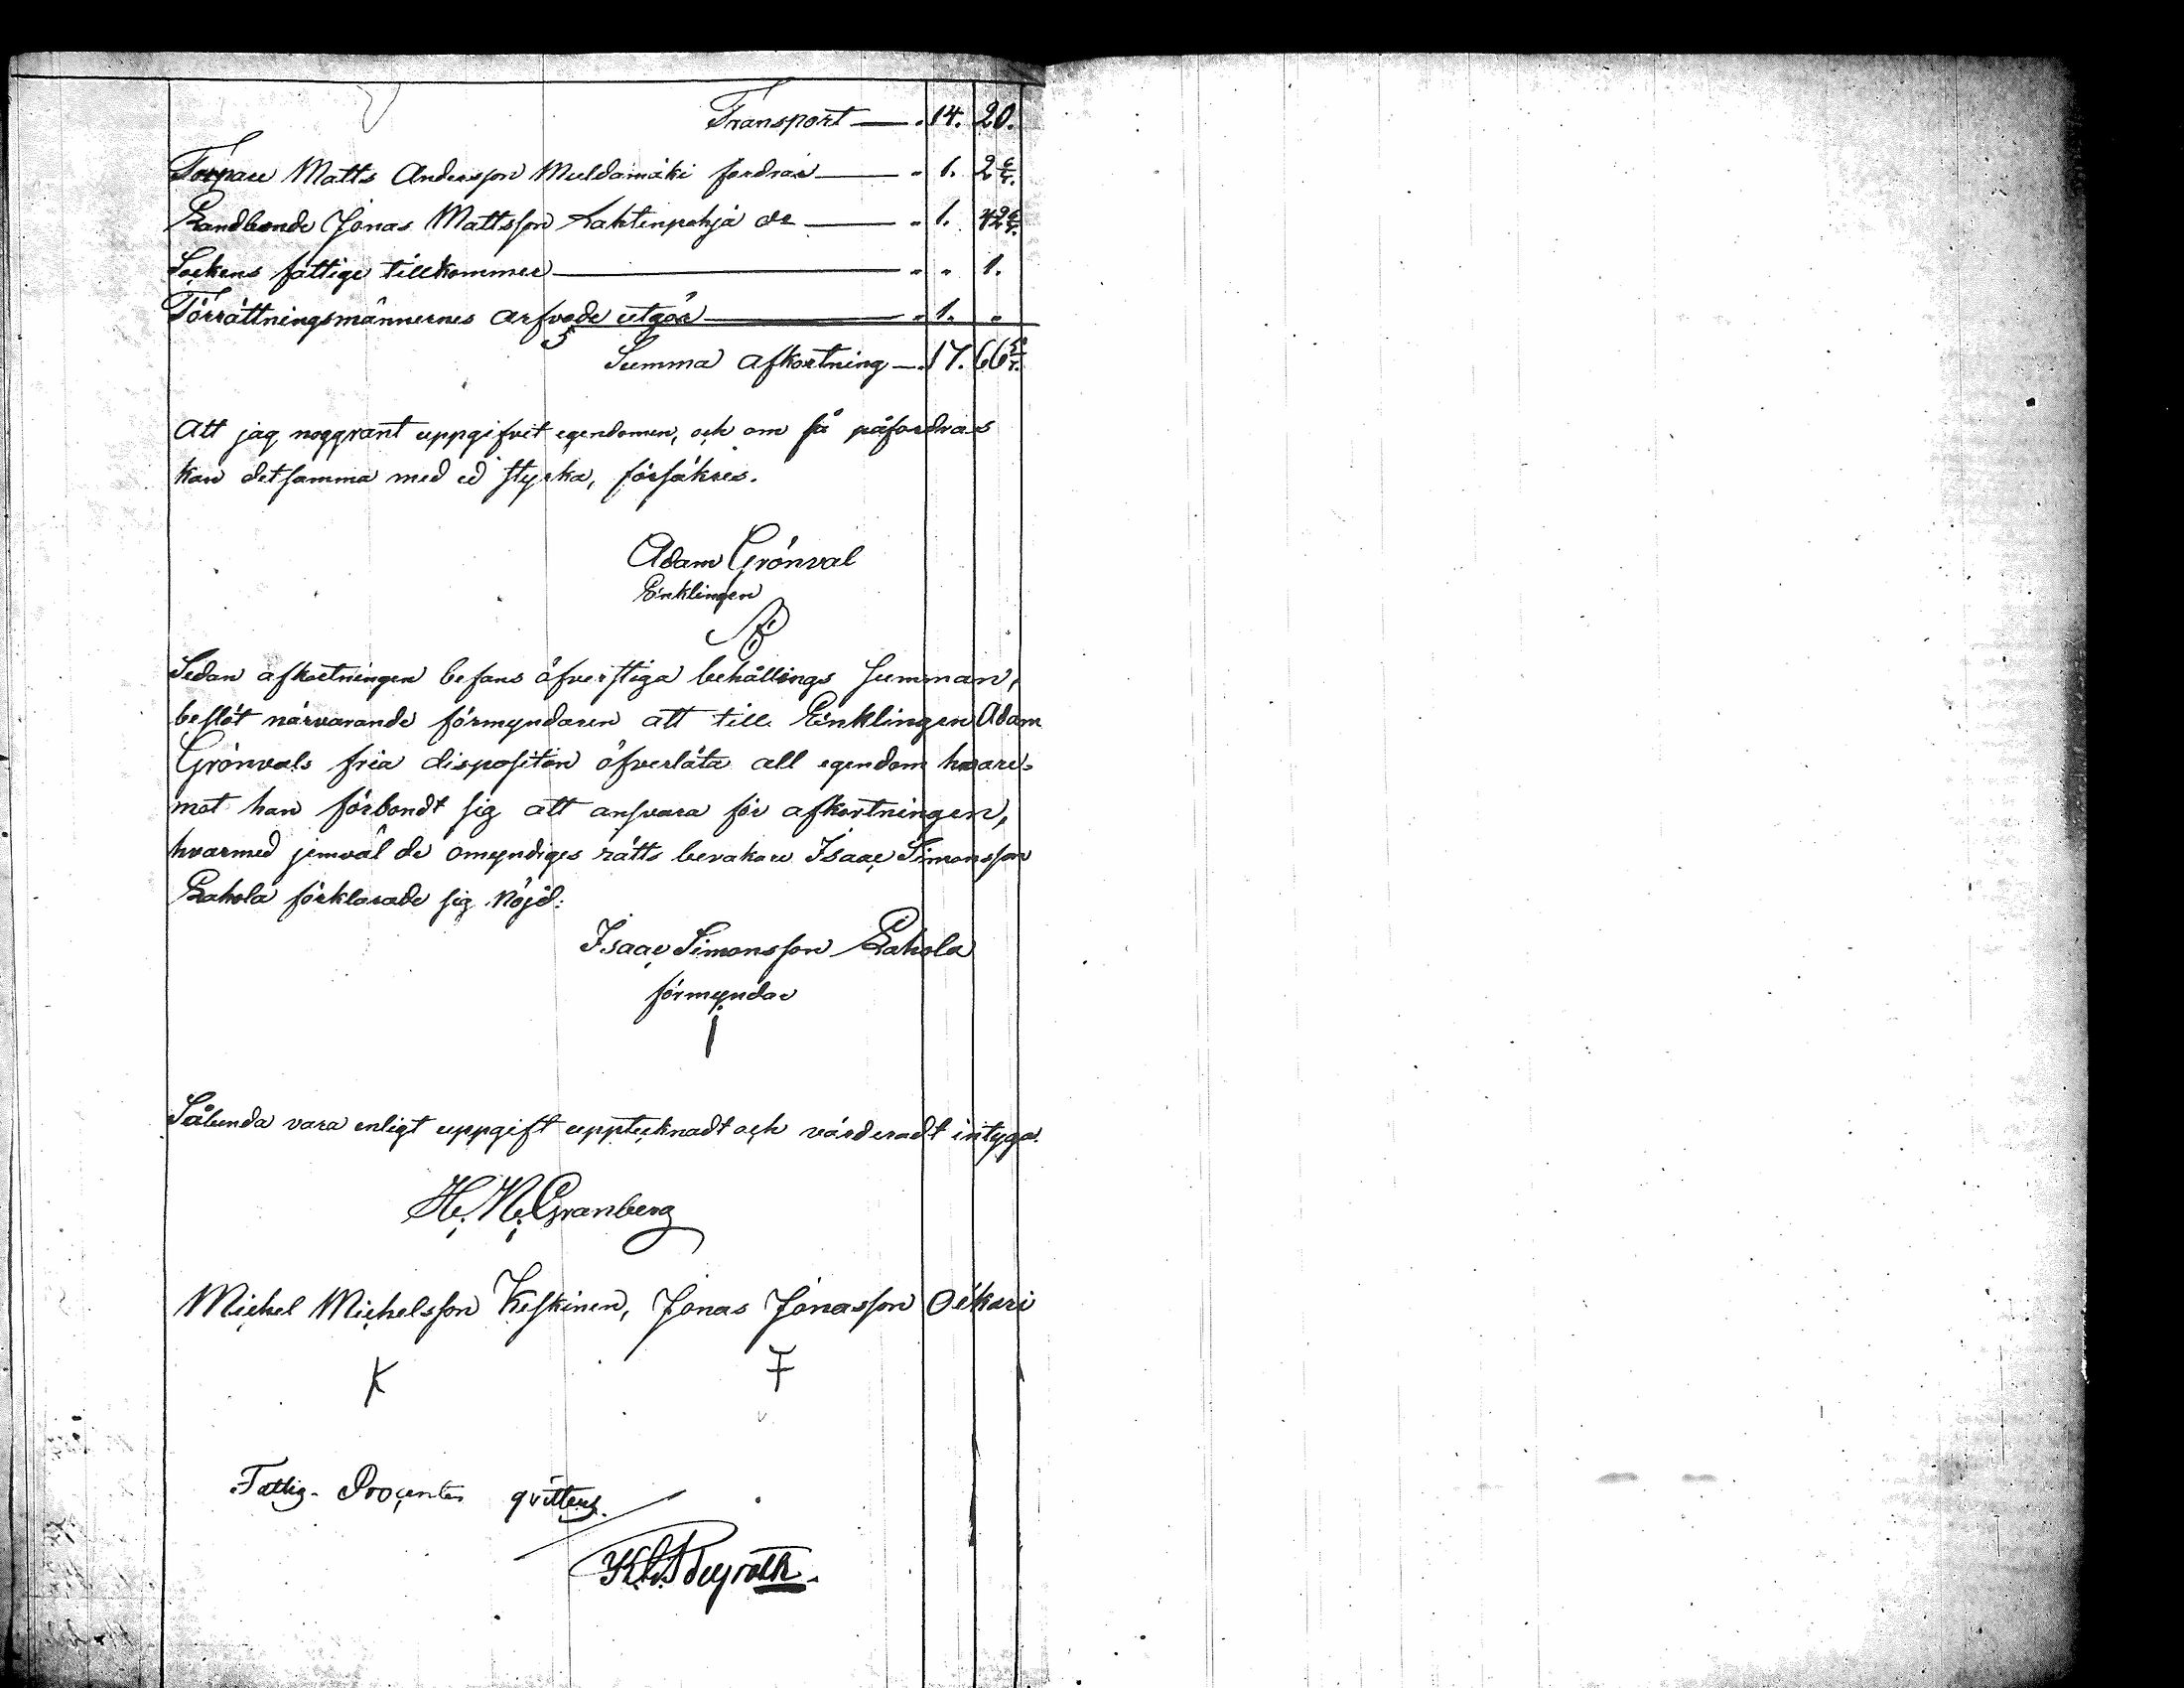 Transport — „ 14. 20.
Torpare Matts Andersson Muldamäki fordrar — „ 1. 2 6/7.
Landbonde Jonas Mattsson Lahtenpohja do — „ 1. 42 6/7.
Sockens fattige tillkommer — „ „ 1.
Förrättningsmännernes arfvode utgör — „ 1. „
Summa afkortning — „ 17. 66 5/7.
Att jag noggrant uppgifvit egendomen, och om så påfordras
kan detsamma med ed styrka, försäkras.
Adam Grönval
Enklingen
Sedan afkortningen befans öfverstiga behållings summan,
beslöt närvarande förmyndaren att till Enklingen Adam
Grönvals fria disposition öfverlåta all egendom hvare-
mot han förbondt sig att ansvara för afkortningen,
hvarmed jemväl de omyndiges rätts bevakare Isaac Simonsson
Rahola förklarade sig nöjd:
Isaac Simonsson Rahola
förmyndar
Sålunda vara enligt uppgift upptecknadt och värderadt intyga.
H. N. Granberg
Michel Michelsson Keskinen, Jonas Jonasson Oikari
K
F
Fattig-Procenten qvitteras.